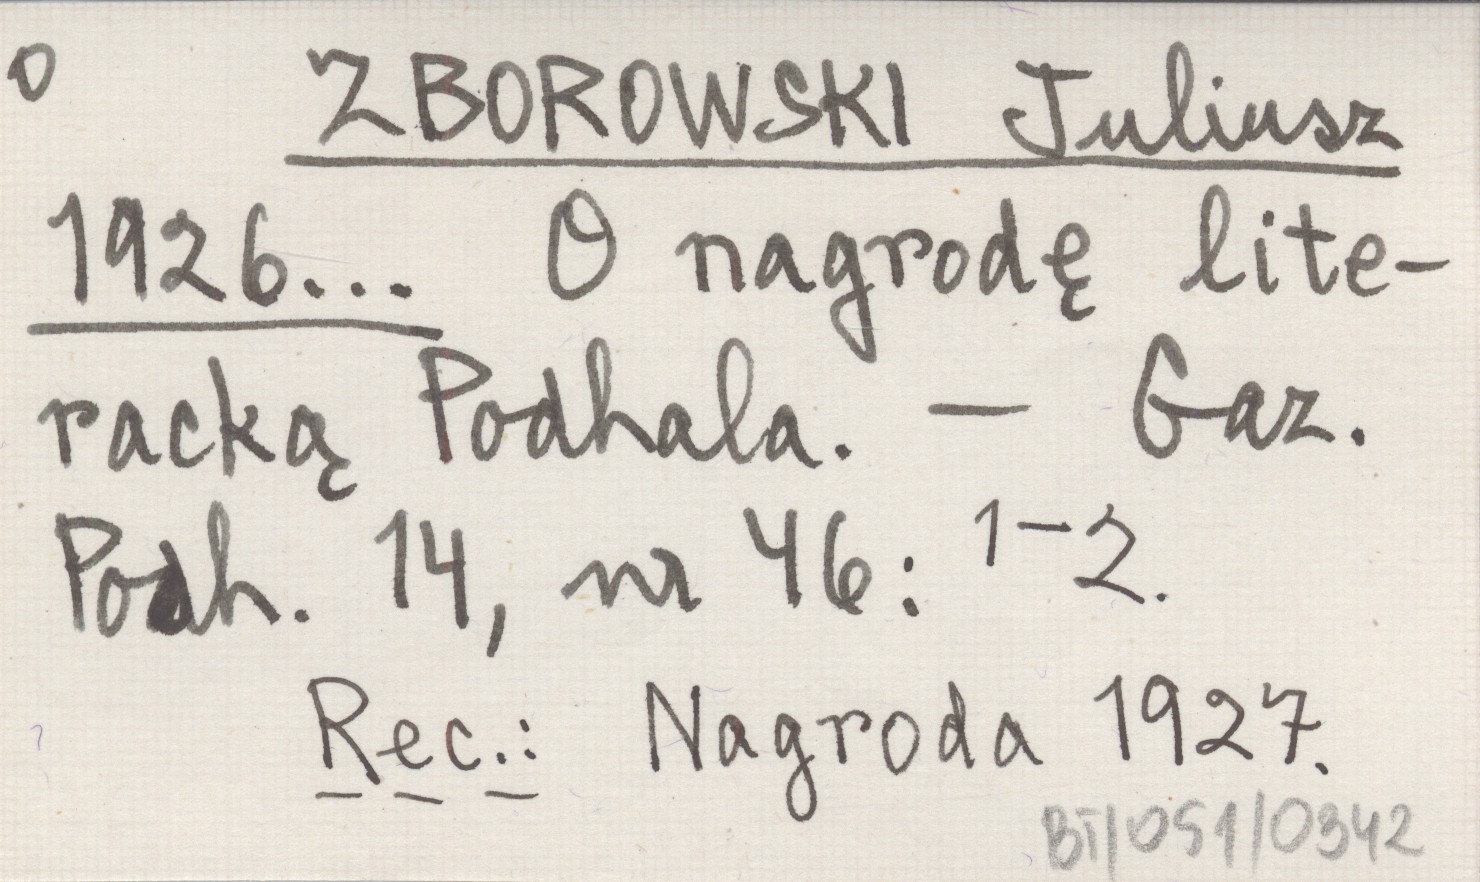 o ZBOROWSKI Juliusz
1926... O nagrodę lite-
racką Podhala. — Gaz.
Podh. 14, nr 46: 1-2.
Rec.: Nagroda 1927.
BT/051/0342